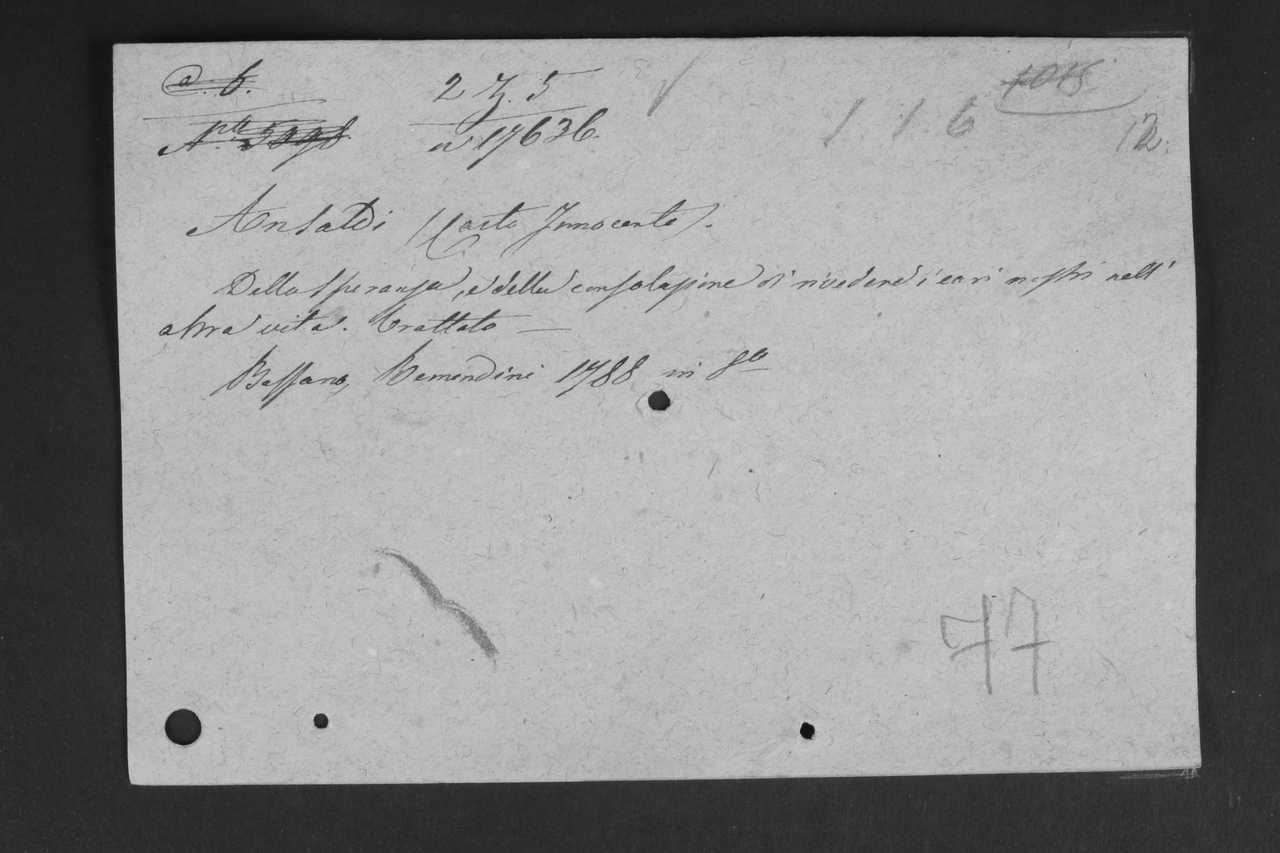 a. 6. 2 Z. 5 1015
N.º 3398 a. 17636. 1 1 6 12.
Ansaldi (Casto Innocente).
Della speranza, e della consolazione di rivedere i cari nostri nell'
altra vita. Trattato —
Bassano, Remondini 1788 in 8º
77